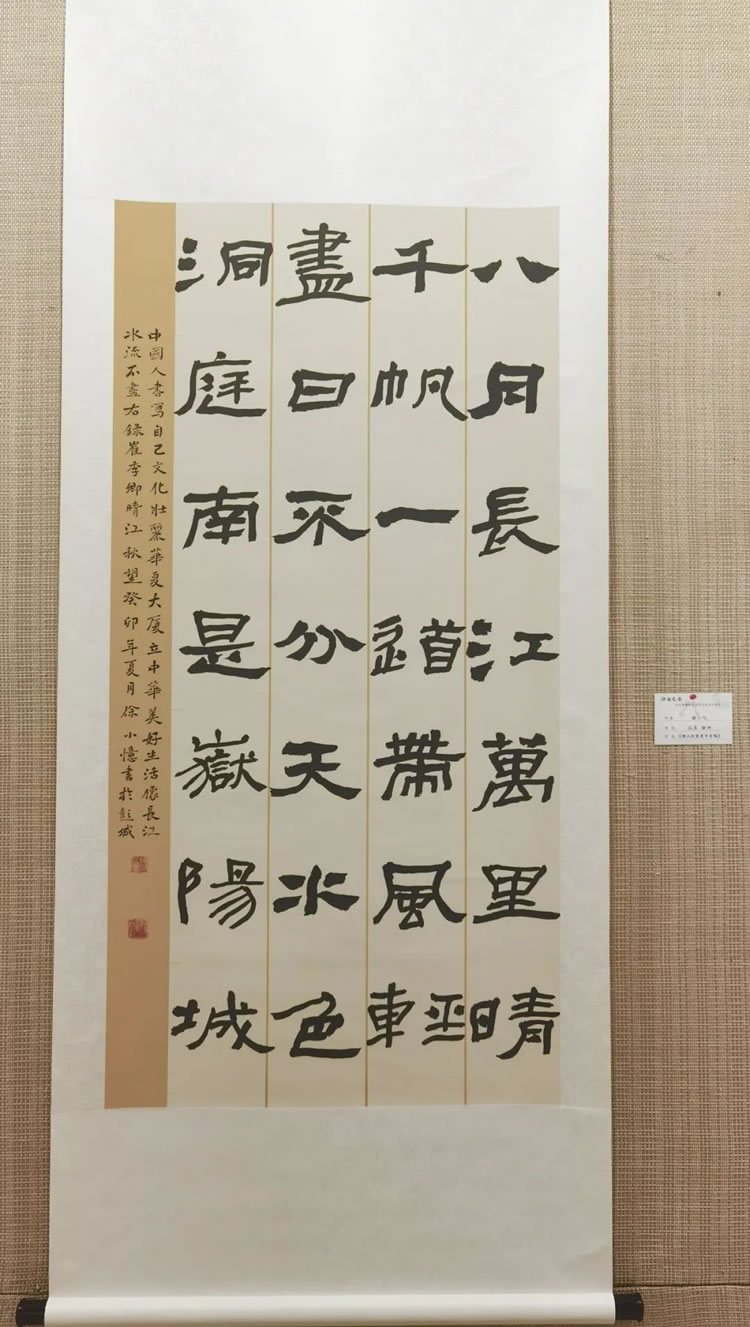 八月長江萬里晴
千帆一道帶風輕
盡日不分天水色
洞庭南是嶽陽城
中國人書寫自己文化壯麗華夏大廈立中華美好生活像長江
水流不盡右錄崔季卿晴江秋望癸卯年夏月徐小憶書於彭城